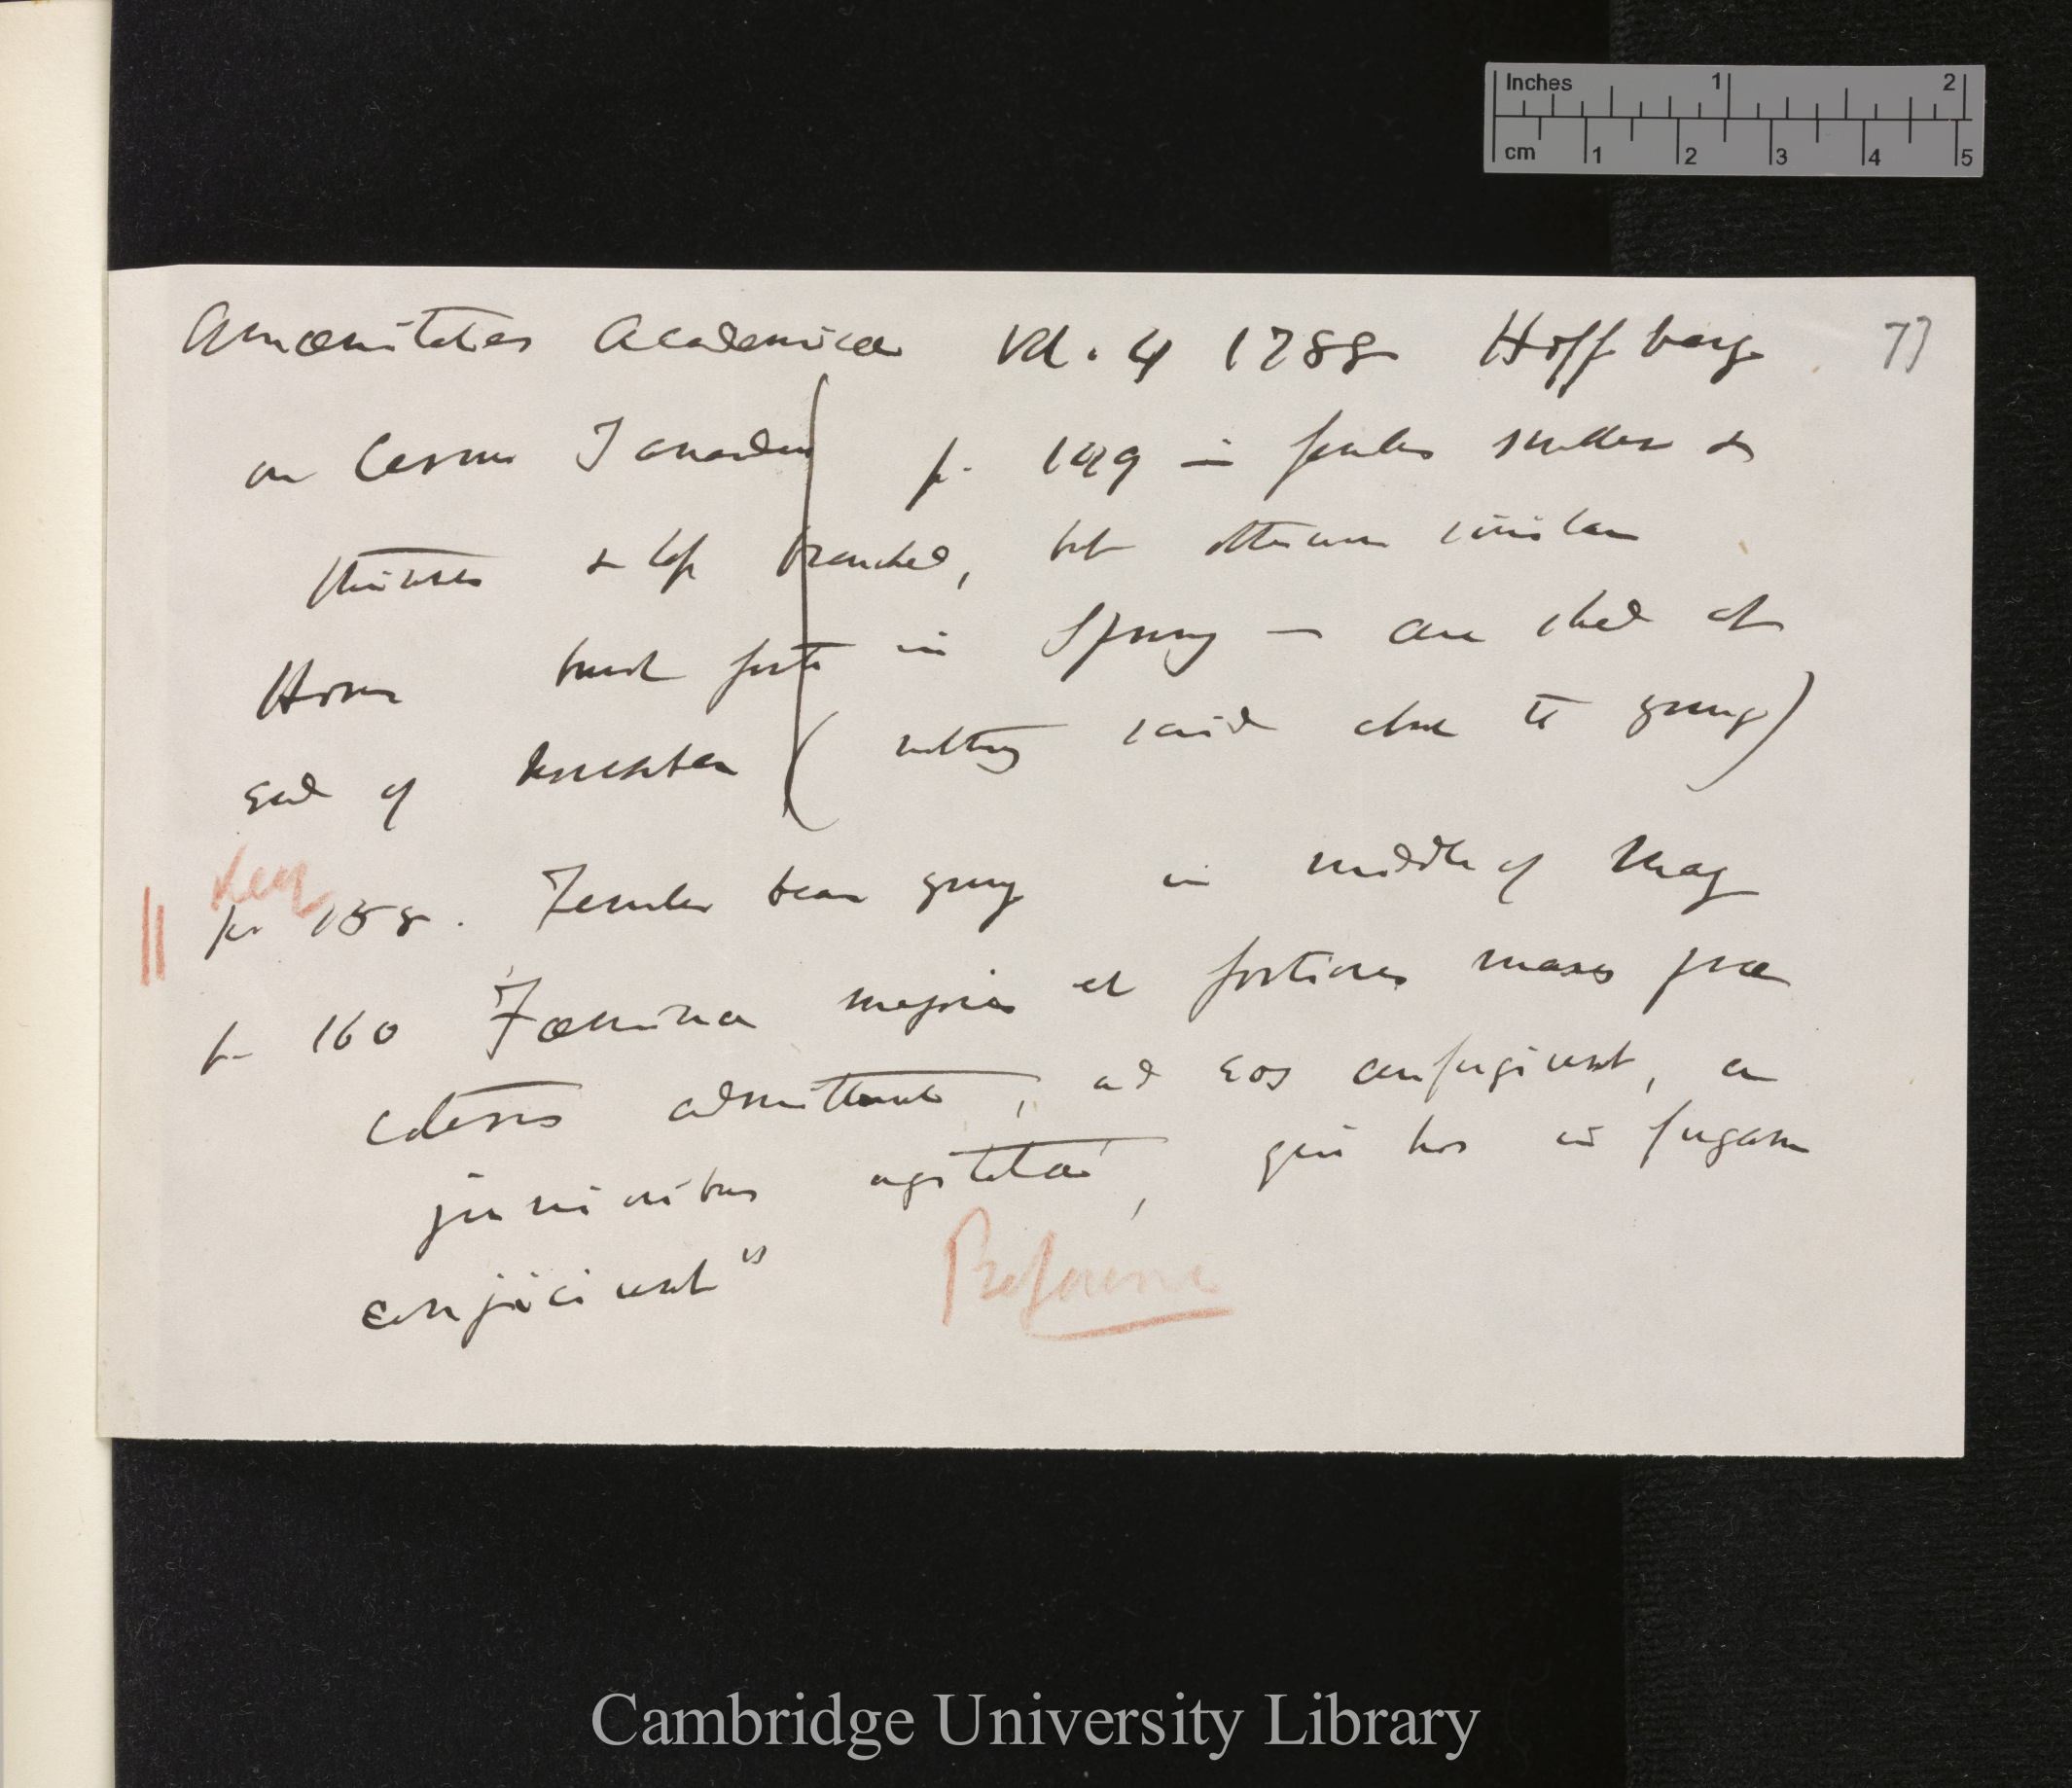 Inches 1 2
cm 1 2 3 4 5
Amœnitates Academicæ Vol. 4 1788 Hoffberg 77
on Cervus Tarandus p. 149 — females smaller &
thinner & less branched, but otherwise similar
Horns burst forth in Spring — are shed at
end of November (nothing said about the young)
Key
p. 158. Females bear young in middle of May
p. 160 Fœminæ majores et fortiores mares præ
ceteris admittunt, ad eos confugiunt, a
junioribus agitatæ, qui hos in fugam
conjiciunt"
Reference
Cambridge University Library